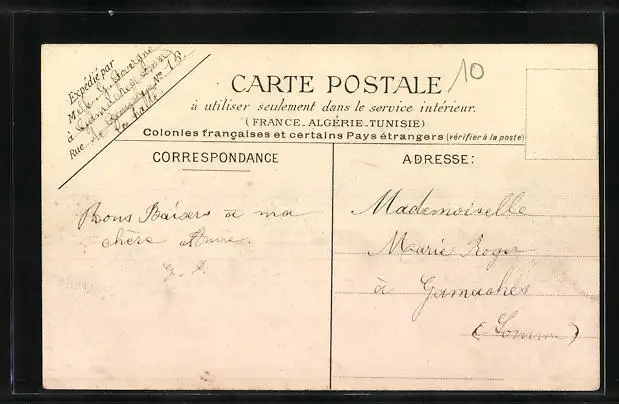 Expédié par
Mlle G.
à Gamaches Somme
Rue de No 13
CARTE POSTALE
10
à utiliser seulement dans le service intérieur.
(FRANCE_ALGÉRIE_TUNISIE)
Colonies françaises et certains Pays étrangers (vérifier à la poste)
CORRESPONDANCE
Bons Baisers à ma
chère Amie.
G. D.
ADRESSE:
Mademoiselle
Marie Roger
à Gamaches
(Somme)